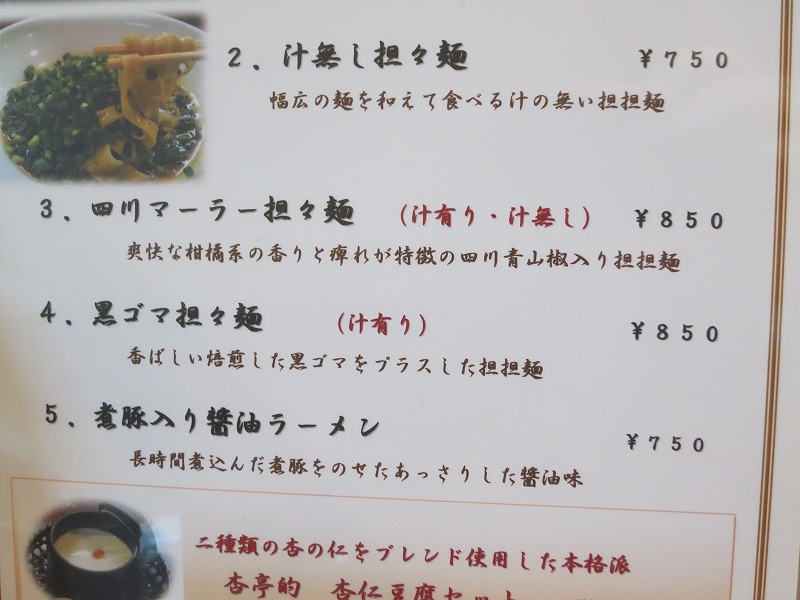 2．汁無し担々麺 ￥750
幅広の麺を和えて食べる汁の無い担担麺
3．四川マーラー担々麺 (汁有り・汁無し) ￥850
爽快な柑橘系の香りと痺れが特徴の四川青山椒入り担担麺
4．黒ゴマ担々麺 (汁有り) ￥850
香ばしい焙煎した黒ゴマをプラスした担担麺
5．煮豚入り醬油ラーメン ￥750
長時間煮込んだ煮豚をのせたあっさりした醬油味
二種類の杏の仁をブレンド使用した本格派
杏亭的 杏仁豆腐セット